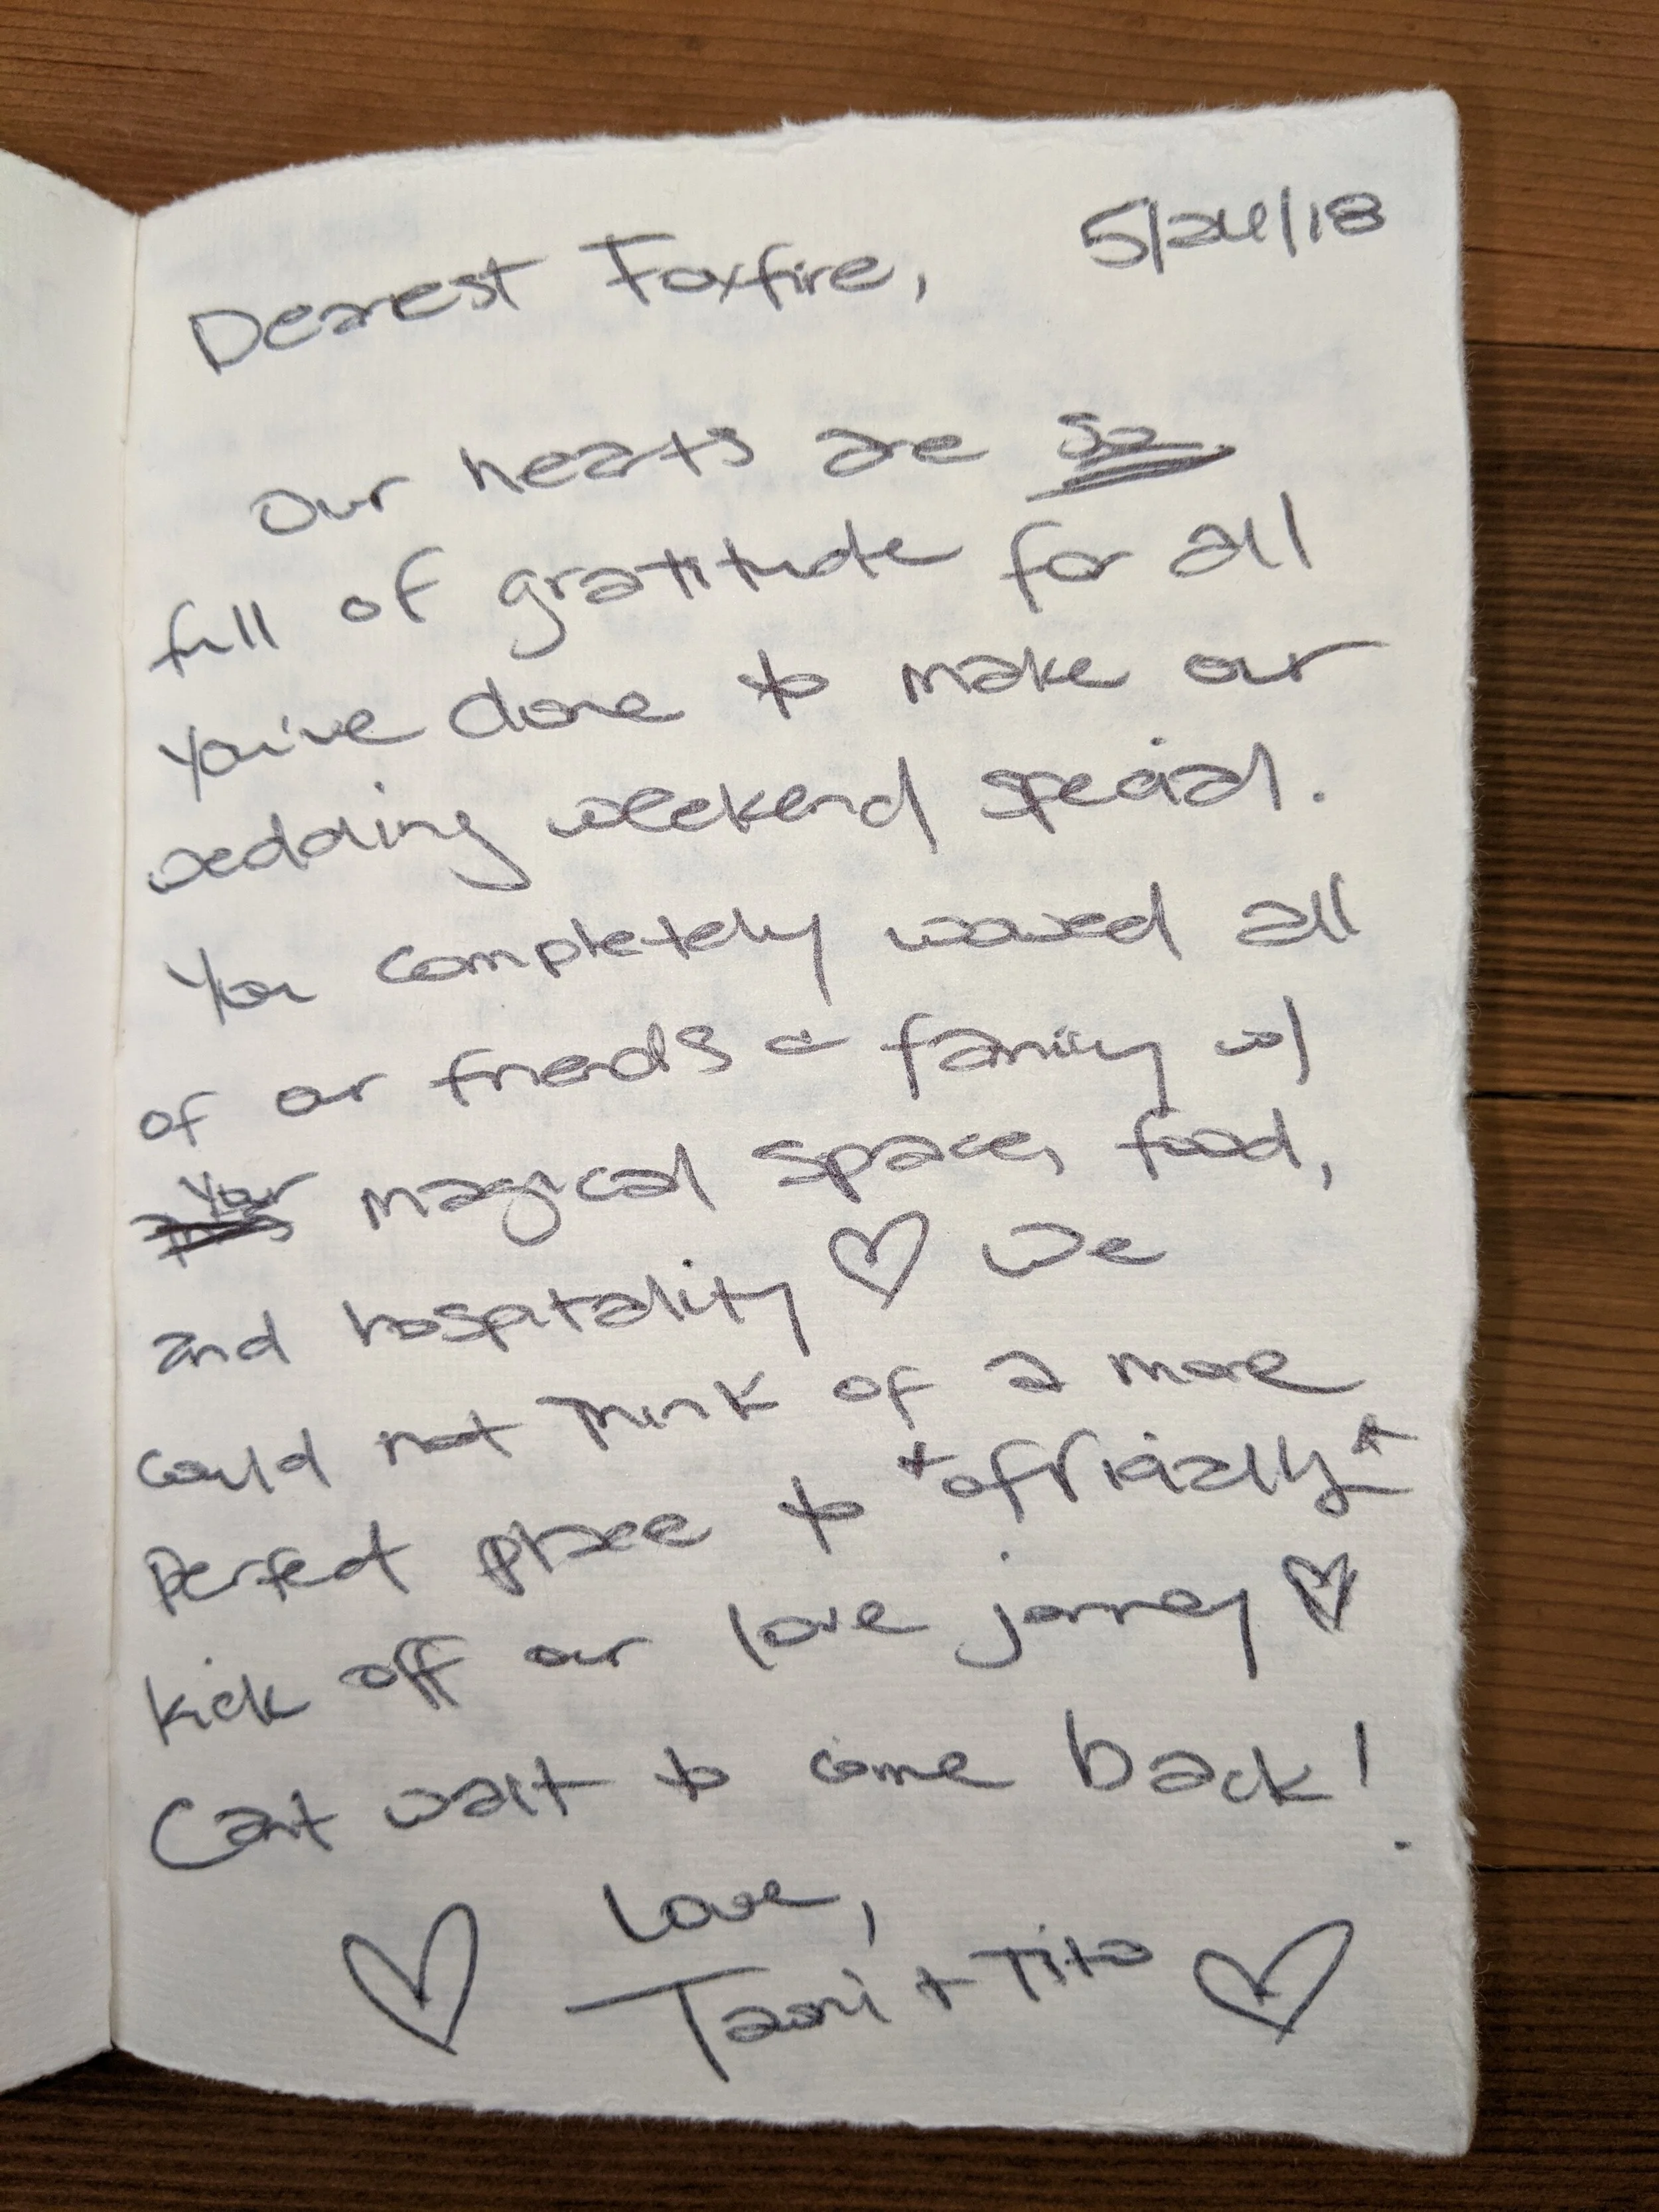 Dearest Foxfire, 5/24/18
Our hearts are so
full of gratitude for all
you've done to make our
wedding weekend special.
You completely wowed all
of our friends & family w/
your magical space, food,
and hospitality ♡ We
could not think of a more
perfect place to *officially*
kick off our love journey ♡
Can't wait to come back!
Love,
♡ + Tito ♡